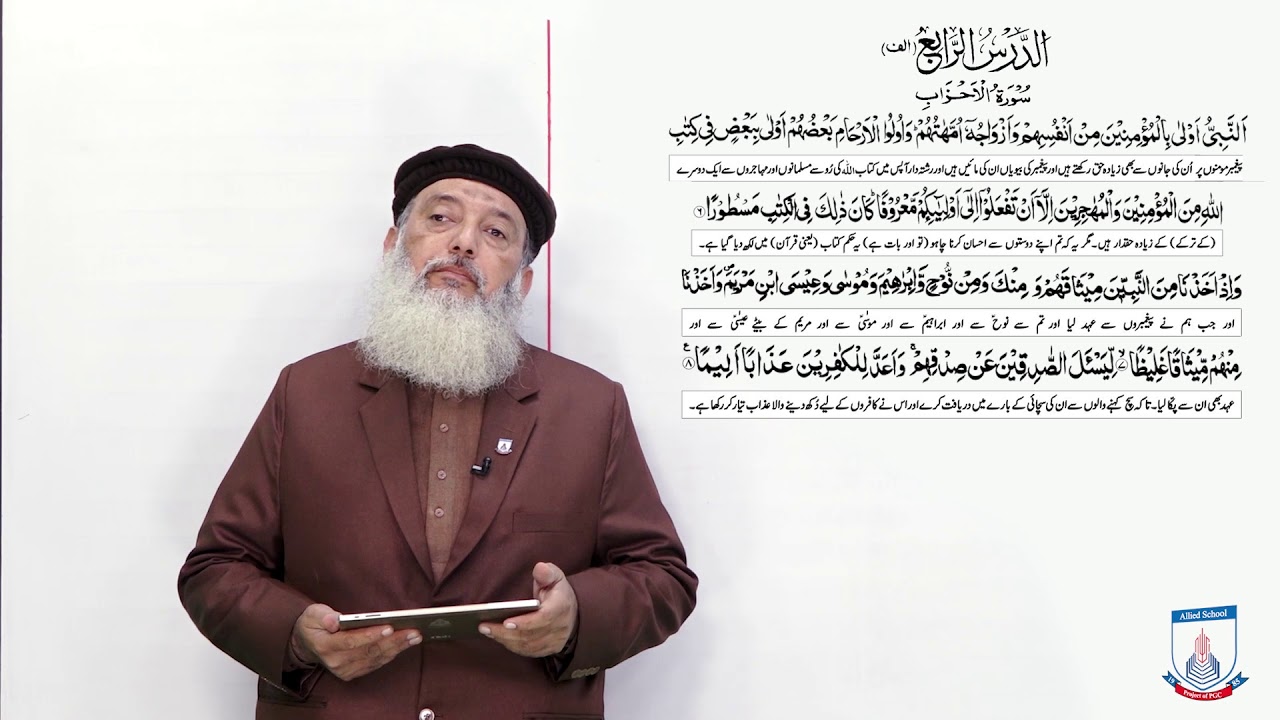 الدَّرْسُ الرَّابِعُ (الف)
سُوْرَةُ الْاَحْزَابِ
اَلنَّبِيُّ اَوْلٰى بِالْمُؤْمِنِيْنَ مِنْ اَنْفُسِهِمْ وَاَزْوَاجُهٗٓ اُمَّهٰتُهُمْ ؕ وَاُولُوا الْاَرْحَامِ بَعْضُهُمْ اَوْلٰى بِبَعْضٍ فِيْ كِتٰبِ
پیغمبر مومنوں پر اُن کی جانوں سے بھی زیادہ حق رکھتے ہیں اور پیغمبر کی بیویاں ان کی مائیں ہیں اور رشتہ دار آپس میں کتاب اللہ کی رُو سے مسلمانوں اور مہاجروں سے ایک دوسرے
اللّٰهِ مِنَ الْمُؤْمِنِيْنَ وَالْمُهٰجِرِيْنَ اِلَّآ اَنْ تَفْعَلُوْٓا اِلٰٓى اَوْلِيٰٓىِٕكُمْ مَّعْرُوْفًا ؕ كَانَ ذٰلِكَ فِي الْكِتٰبِ مَسْطُوْرًا ۶
(کے ترکے) کے زیادہ حقدار ہیں۔ مگر یہ کہ تم اپنے دوستوں سے احسان کرنا چاہو (تو اور بات ہے) یہ حکم کتاب (یعنی قرآن) میں لکھ دیا گیا ہے۔
وَاِذْ اَخَذْنَا مِنَ النَّبِيّٖنَ مِيْثَاقَهُمْ وَمِنْكَ وَمِنْ نُّوْحٍ وَّاِبْرٰهِيْمَ وَمُوْسٰى وَعِيْسَى ابْنِ مَرْيَمَ ۪ وَاَخَذْنَا
اور جب ہم نے پیغمبروں سے عہد لیا اور تم سے نوحؑ سے اور ابراہیمؑ سے اور موسٰیؑ سے اور مریم کے بیٹے عیسٰیؑ سے اور
مِنْهُمْ مِّيْثَاقًا غَلِيْظًا ۷ لِّيَسْـَٔلَ الصّٰدِقِيْنَ عَنْ صِدْقِهِمْ ۚ وَاَعَدَّ لِلْكٰفِرِيْنَ عَذَابًا اَلِيْمًا ۸ ع
عہد بھی ان سے پکا لیا۔ تاکہ سچ کہنے والوں سے ان کی سچائی کے بارے میں دریافت کرے اور اس نے کافروں کے لیے دُکھ دینے والا عذاب تیار کر رکھا ہے۔
Allied School
19 85
Project of PGC